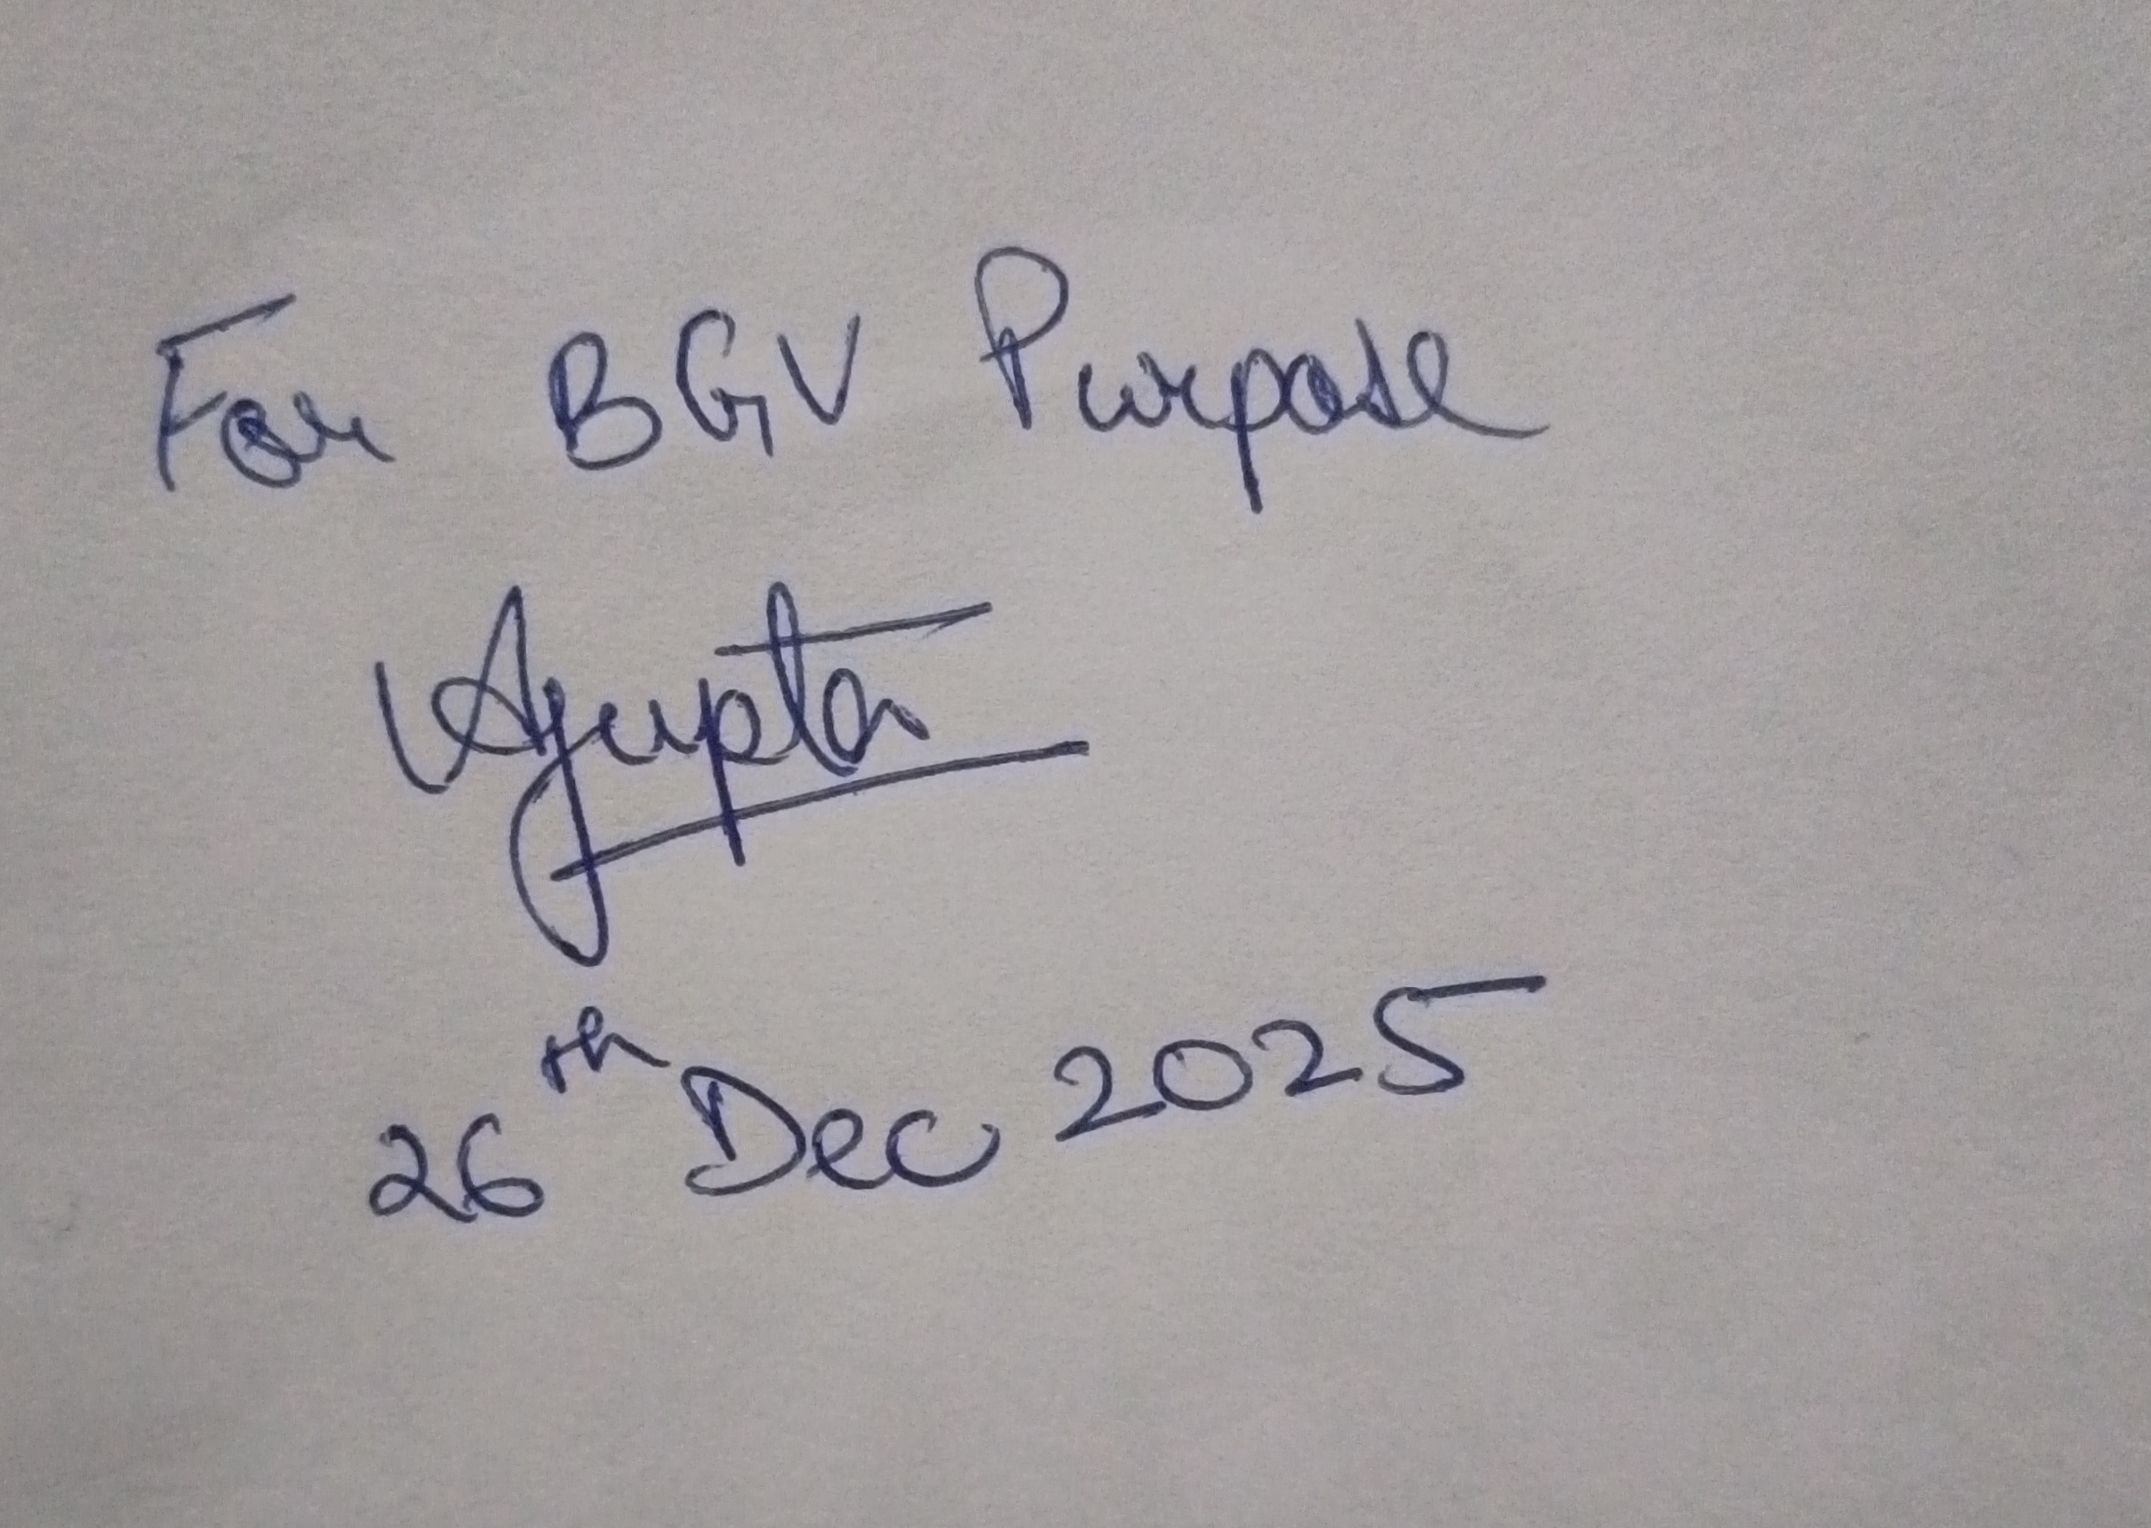 For BGV Purpose
Agupta
26th Dec 2025